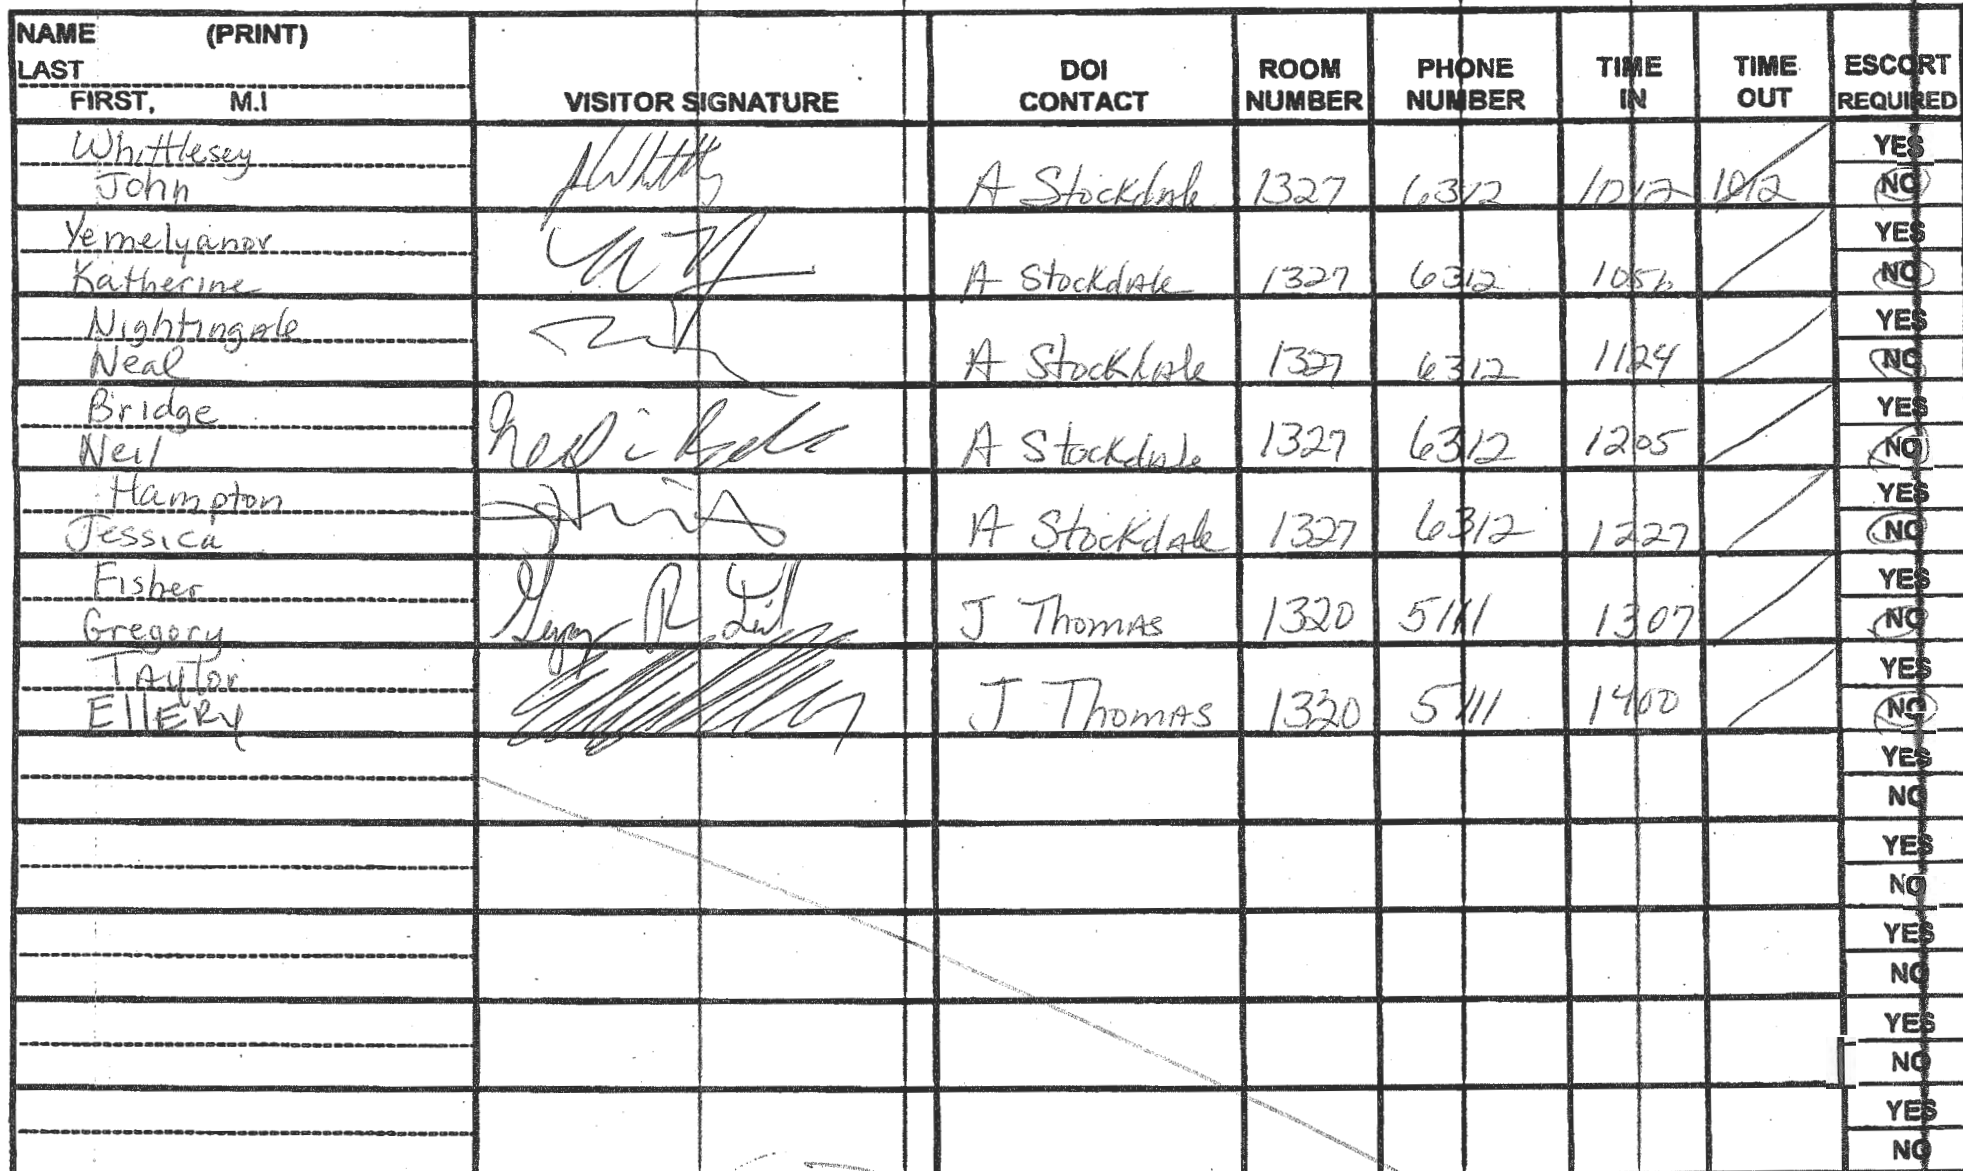 NAME (PRINT)
LAST
FIRST, M.I
VISITOR SIGNATURE
DOI CONTACT
ROOM NUMBER
PHONE NUMBER
TIME IN
TIME OUT
ESCORT REQUIRED
Whittlesey YES
John A Stockdale 1327 6312 1012 1012 NO
Yemelyanov YES
Katherine A Stockdale 1327 6312 1056 NO
Nightingale YES
Neal A Stockdale 1327 6312 1124 NO
Bridge YES
Neil A Stockdale 1327 6312 1205 NO
Hampton YES
Jessica A Stockdale 1327 6312 1227 NO
Fisher YES
Gregory J Thomas 1320 5111 1307 NO
TAylor YES
EllERy J ThomAs 1320 5111 1400 NO
YES
NO
YES
NO
YES
NO
YES
NO
YES
NO